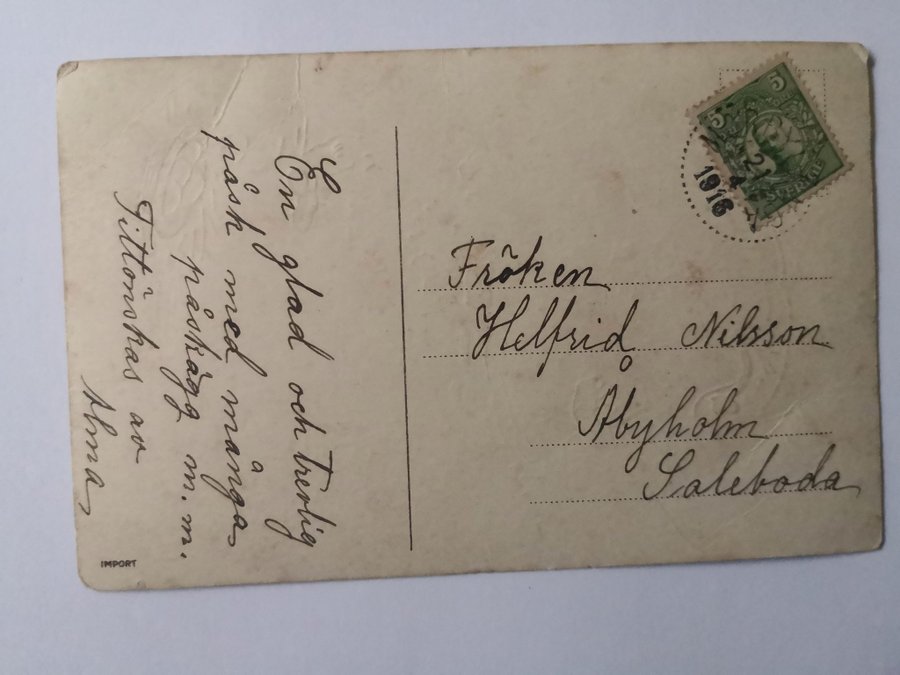 En glad och trevlig
påsk med många
påskägg m.m.
Tillönskas av
Alma
IMPORT
5 5
SVERIGE
21
4
1916
Fröken
Helfrid Nilsson
Åbyholm
Saleboda